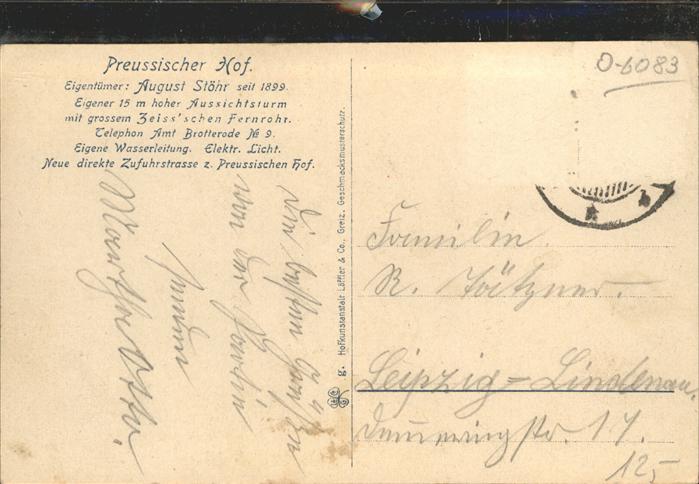 Preussischer Hof.
Eigentümer: August Stöhr seit 1899.
Eigener 15 m hoher Aussichtsturm
mit grossem Zeiss'schen Fernrohr.
Telephon Amt Brotterode № 9.
Eigene Wasserleitung. Elektr. Licht.
Neue direkte Zufuhrstrasse z. Preussischen Hof.
Die besten Grüße
von der
senden
Martha Otto.
g. Hofkunstanstalt Löffler & Co., Greiz. Geschmacksmusterschutz.
O-6083
Familie
R.
Leipzig-Lindenau.
17.
12,-